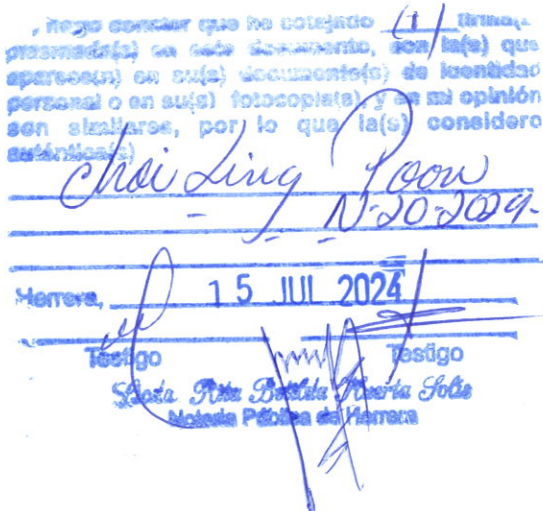 , hago constar que he cotejado (1) firma(s
plasmada(s) en este documento, son la(s) que
aparece(n) en su(s) documento(s) de identidad
personal o en su(s) fotocopia(s), y en mi opinión
son similares, por lo que la(s) considero
auténtica(s)
Choi Ling Poon
N-20-2029-
Herrera, 15 JUL 2024
Testigo Testigo
Rita Huerta Solis
Notaria Pública de Herrera